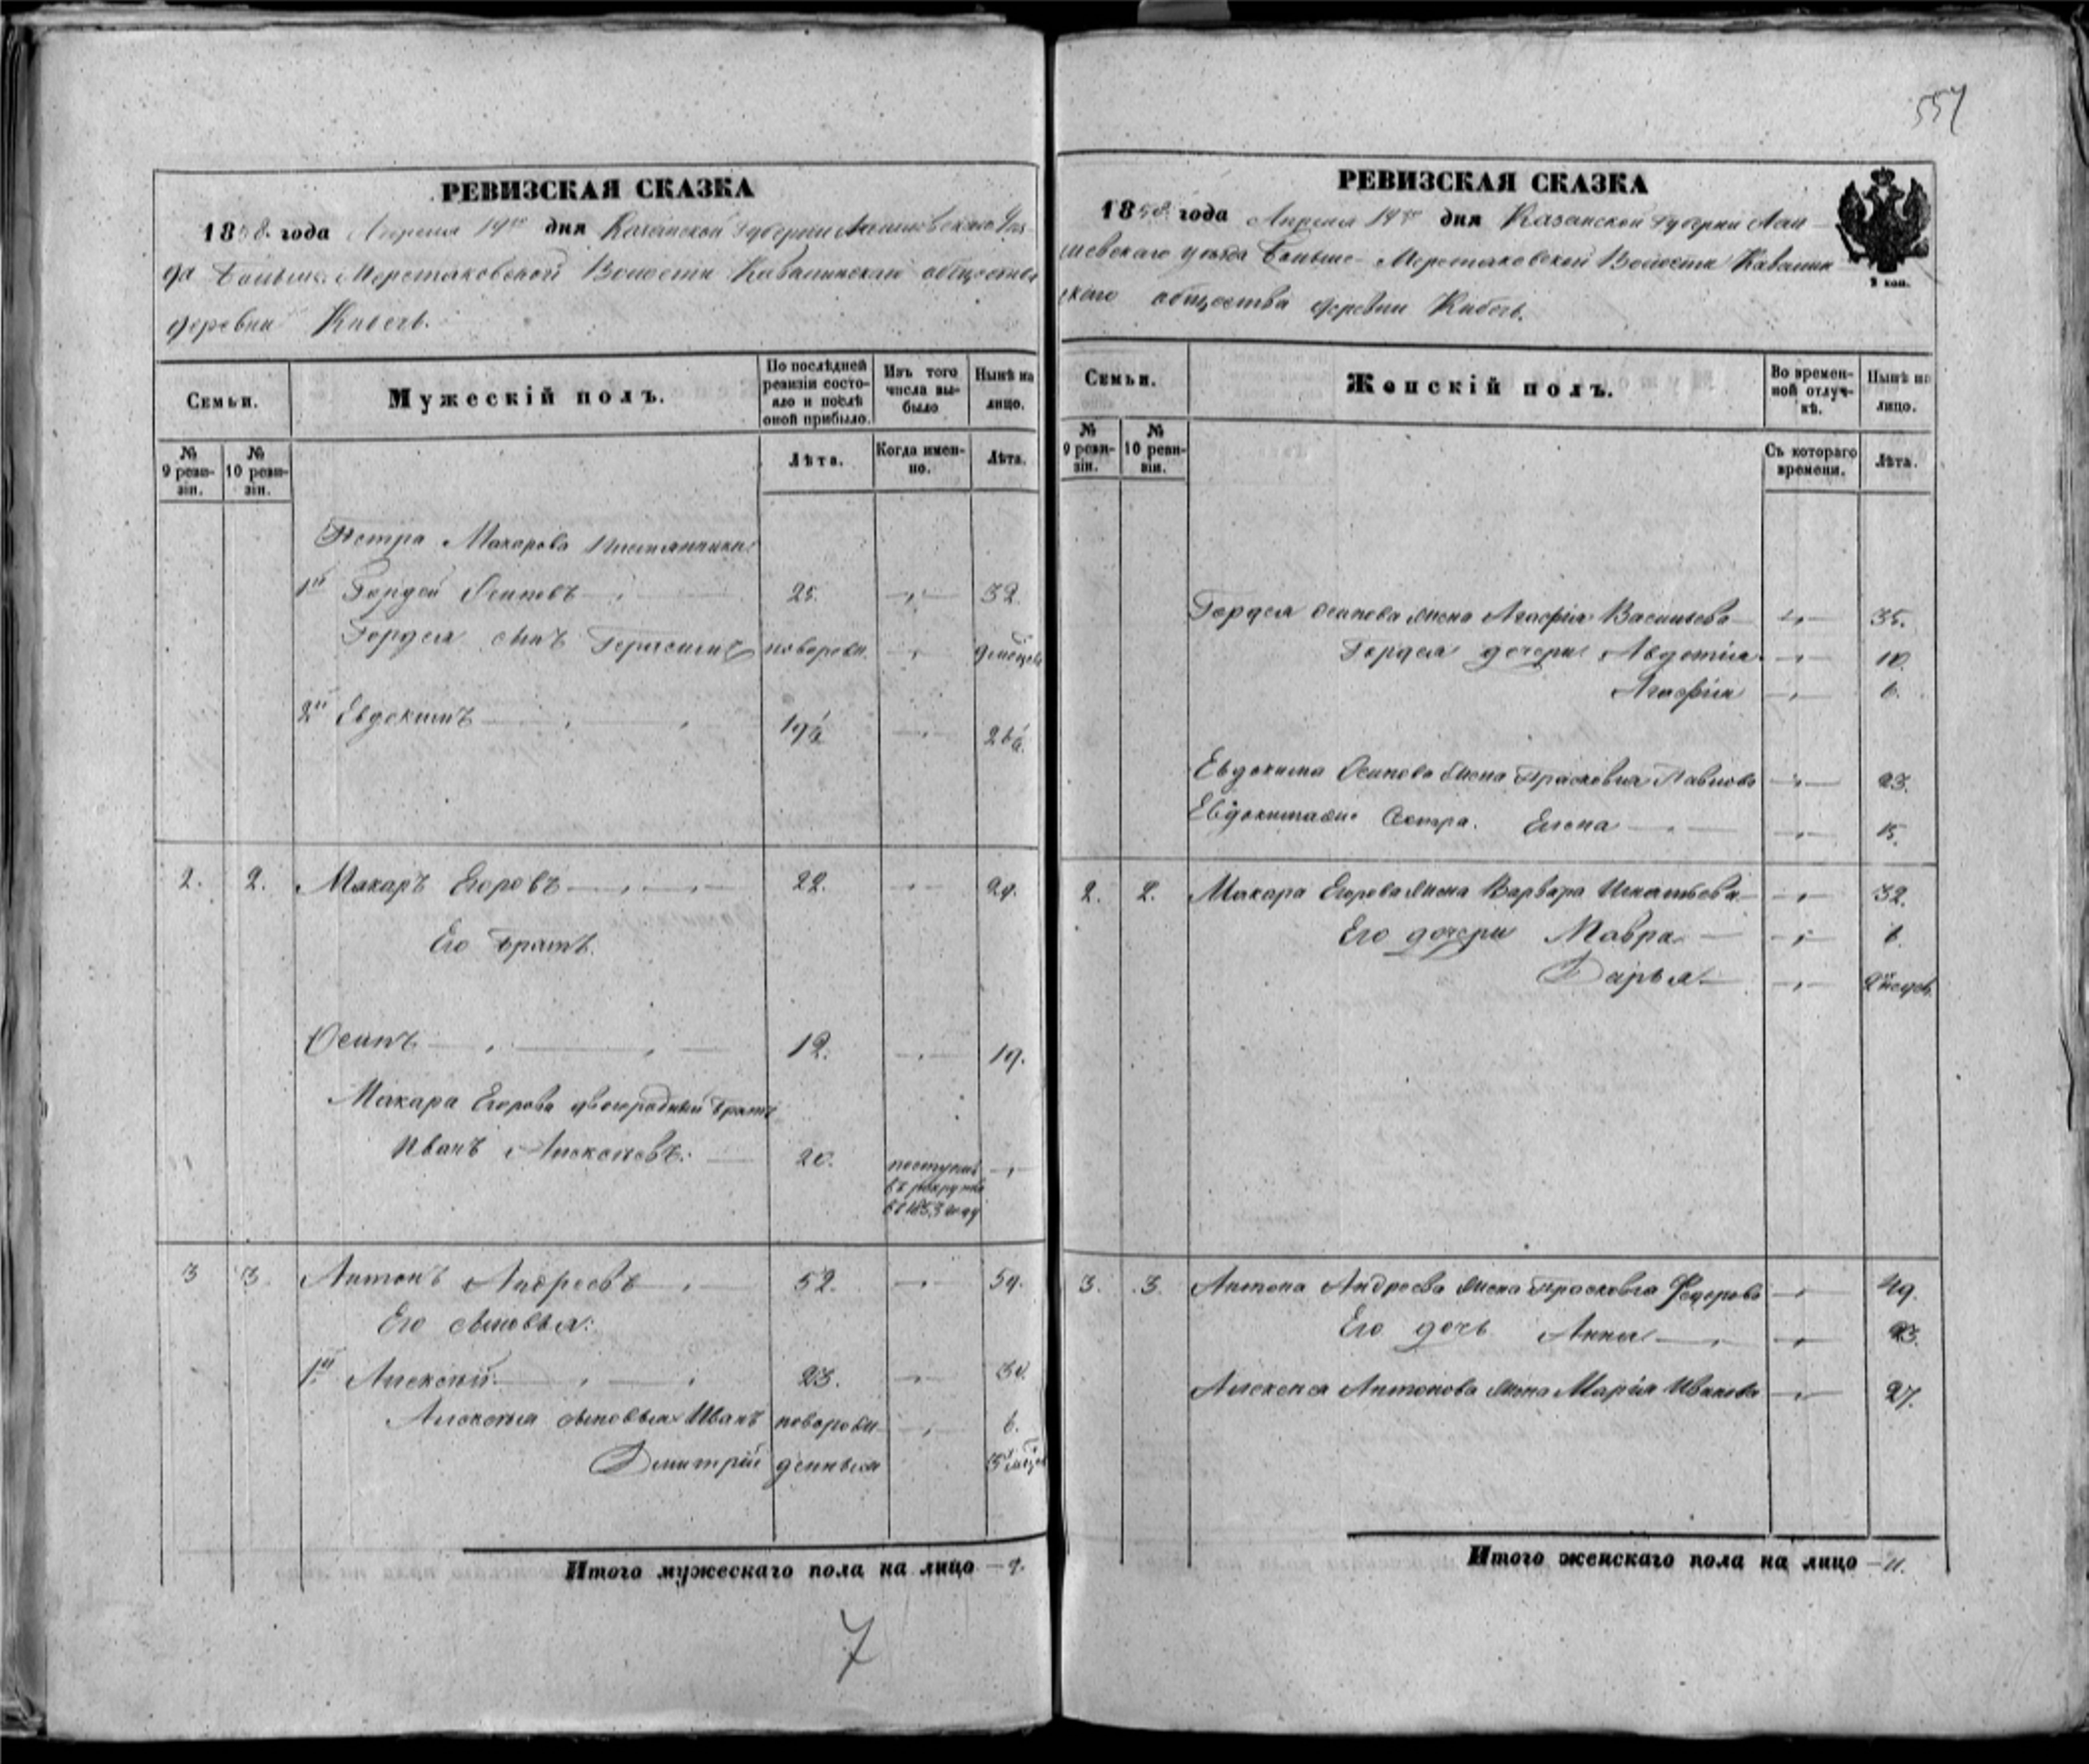 557
РЕВИЗСКАЯ СКАЗКА
1858 года Апреля 19го дня Казанской Губернии Лаишевскаго Уез
да Больше-Меретяковской Волости Кавалинскаго общества
деревни Кибечь.
Семьи.
Мужескій полъ.
По послѣдней ревизіи состояло и послѣ оной прибыло.
Изъ того числа выбыло
Нынѣ на лицо.
№ 9 ревизіи.
№ 10 ревизіи.
Лѣта.
Когда именно.
Лѣта.
Петра Макарова
1й Гордей Осиповъ 25. 32.
Гордея сынъ Герасимъ новорожд. 9 месцевъ
2й Евдокимъ 19½ 26½
2. 2. Макаръ Егоровъ 22. 29.
Его братъ
Осипъ 12. 19.
Макара Егорова двоюродный братъ
Иванъ Алексеевъ. 20. поступилъ
въ рекруты
въ 1853 году
3 3 Антонъ Андреевъ 52. 59.
Его сыновья:
1й Алексей 23. 30.
Алексея сыновья Иванъ новорож 6.
Дмитрій денныя 5 месцев
Итого мужескаго пола на лицо 9.
7
РЕВИЗСКАЯ СКАЗКА
1858 года Апреля 19го дня Казанской Губерніи Лаи
шевскаго уезда Больше-Меретяковской Волости Кавалин
скаго общества деревни Кибечь.
2 коп.
Семьи.
Женскій полъ.
Во временной отлучкѣ.
Нынѣ на лицо.
№ 9 ревизіи.
№ 10 ревизіи.
Съ котораго времени.
Лѣта.
Гордея Осипова жена Агафія Васильева 35.
Гордея дочери Авдотія 10.
Агафія 6.
Евдокима Осипова жена Прасковья Павлова 23.
Сестра Елена 15.
2. 2. Макара Егорова жена Варвара Игнатьева 32.
Его дочери Мавра 6.
Дарья недѣл.
3. 3. Антона Андреева жена Прасковья Федорова 49.
Его дочь Анна 23.
Алексея Антонова жена Марія Иванова 27.
Итого женскаго пола на лицо 11.